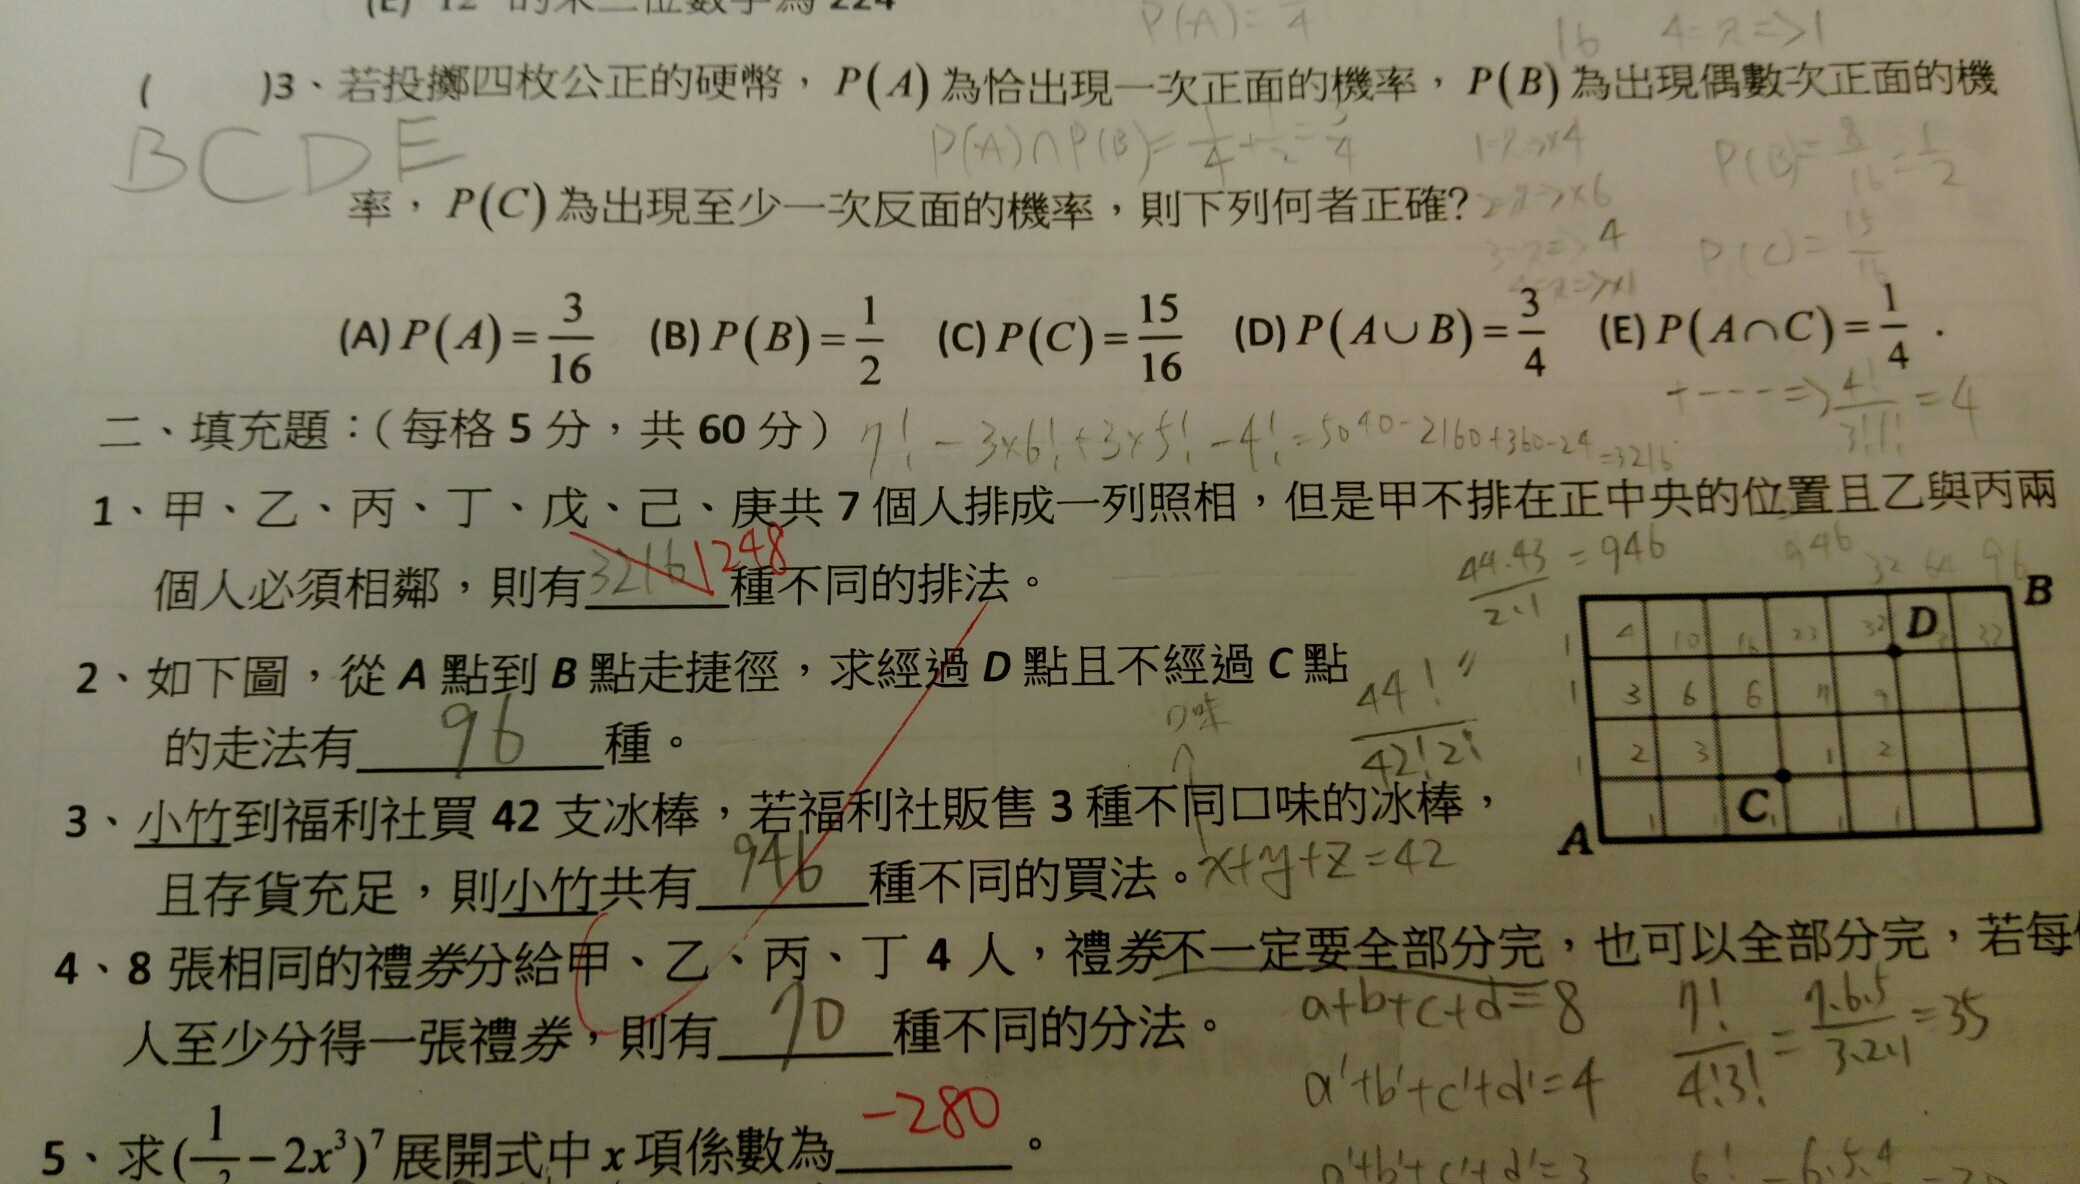 P(A)= 4
16 4正=>1
( )3、若投擲四枚公正的硬幣，P(A)為恰出現一次正面的機率，P(B)為出現偶數次正面的機
BCDE
P(A)∩P(B)= 1/4 + 1/2 = 3/4
P(B)= 8/16 = 1/2
率，P(C)為出現至少一次反面的機率，則下列何者正確?
P(C)= 15/16
(A) P(A)=3/16 (B) P(B)=1/2 (C) P(C)=15/16 (D) P(A∪B)=3/4 (E) P(A∩C)=1/4 .
+--- => 4!/3!1! = 4
二、填充題：（每格 5 分，共 60 分）
7!-3×6!+3×5!-4!=5040-2160+360-24=3216
1、甲、乙、丙、丁、戊、己、庚共 7 個人排成一列照相，但是甲不排在正中央的位置且乙與丙兩
個人必須相鄰，則有 3216 1248 種不同的排法。
44.43/2.1 = 946
946 32 64 96
B
D
2、如下圖，從 A 點到 B 點走捷徑，求經過 D 點且不經過 C 點
的走法有 96 種。
44!/42!2!
口味
C
A
3、小竹到福利社買 42 支冰棒，若福利社販售 3 種不同口味的冰棒，
且存貨充足，則小竹共有 946 種不同的買法。
x+y+z=42
4、8 張相同的禮券分給甲、乙、丙、丁 4 人，禮券不一定要全部分完，也可以全部分完，若每
人至少分得一張禮券，則有 70 種不同的分法。
a+b+c+d=8
7!/4!3! = 7.6.5/3.2.1 = 35
a'+b'+c'+d'=4
-280
5、求(1/ -2x³)⁷展開式中 x 項係數為 。
a'+b'+c'+d'=3